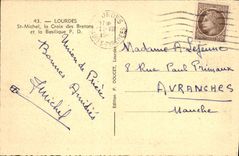 43. — LOURDES
St-Michel, la Croix des Bretons
et la Basilique P. D.
Union de Prières
Bonnes Amitiés
Michel
P. DOUCET, LOURDES
Madame A. Lefeune
8 Rue Paul
AVRANCHES
Manche